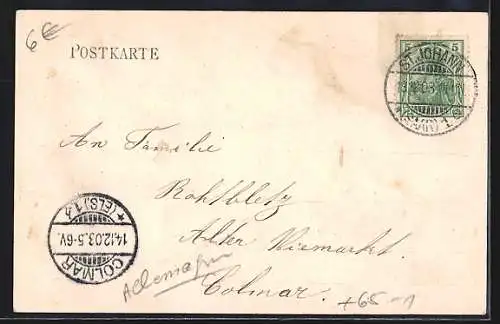 6€
POSTKARTE
5 5
ST. JOHANN
(SAAR) 1
An Familie
Rohtbletz
Alter Viemarkt.
Colmar.
COLMAR
14.12.03.5-6V.
* (ELS.) 1
Allemagne
+65-1